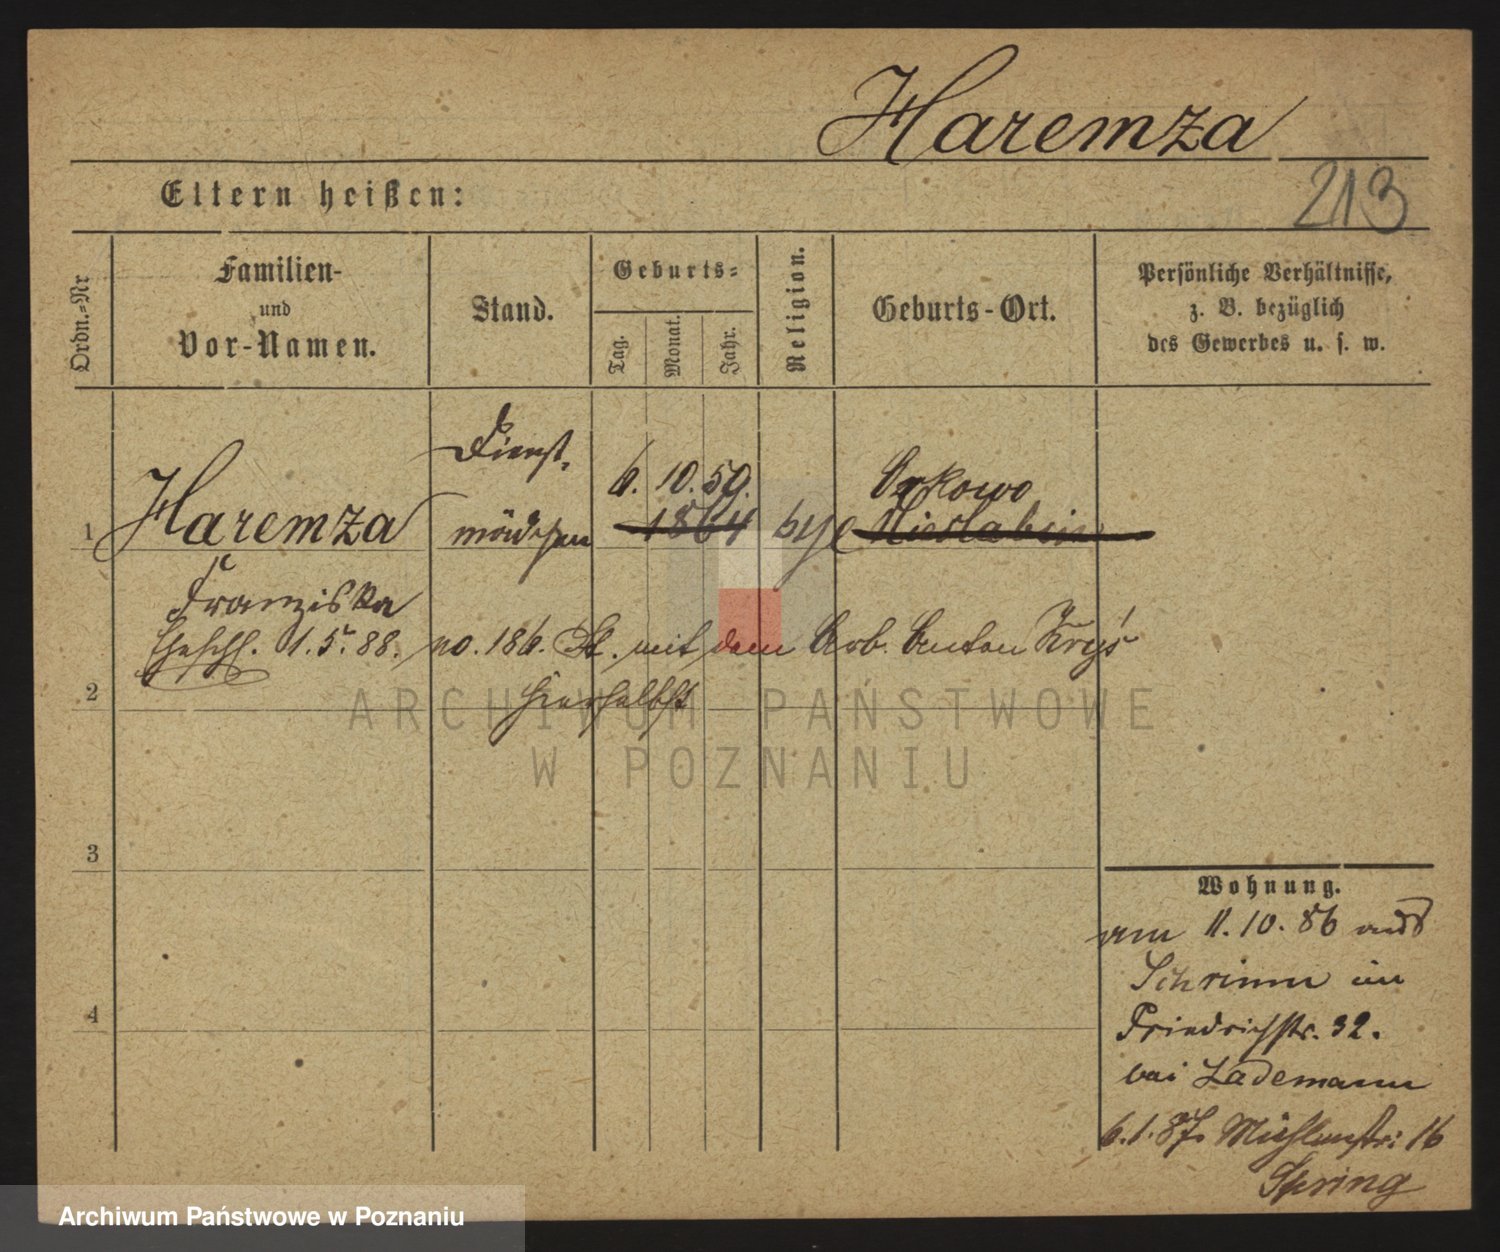 Haremza
213
Eltern heißen:
Ordn.-Nr
Familien-
und
Vor-Namen.
Stand.
Geburts-
Tag.
Monat.
Jahr.
Religion.
Geburts-Ort.
Persönliche Verhältnisse,
z. B. bezüglich
des Gewerbes u. s. w.
Dienst
6. 10. 59. Orkowo
1 Haremza mädchen 1864
Franziska
Eheschl. 1. 5. 88. no. 186. St. mit dem Arb. Anton Kryś
hierselbst
2
3
4
Wohnung.
am 11. 10. 86 aus
Schrimm in
Friedrichstr. 32.
bei Lademann
6. 1. 87. Mühlenstr: 16
Spring
ARCHIWUM PAŃSTWOWE
W POZNANIU
Archiwum Państwowe w Poznaniu